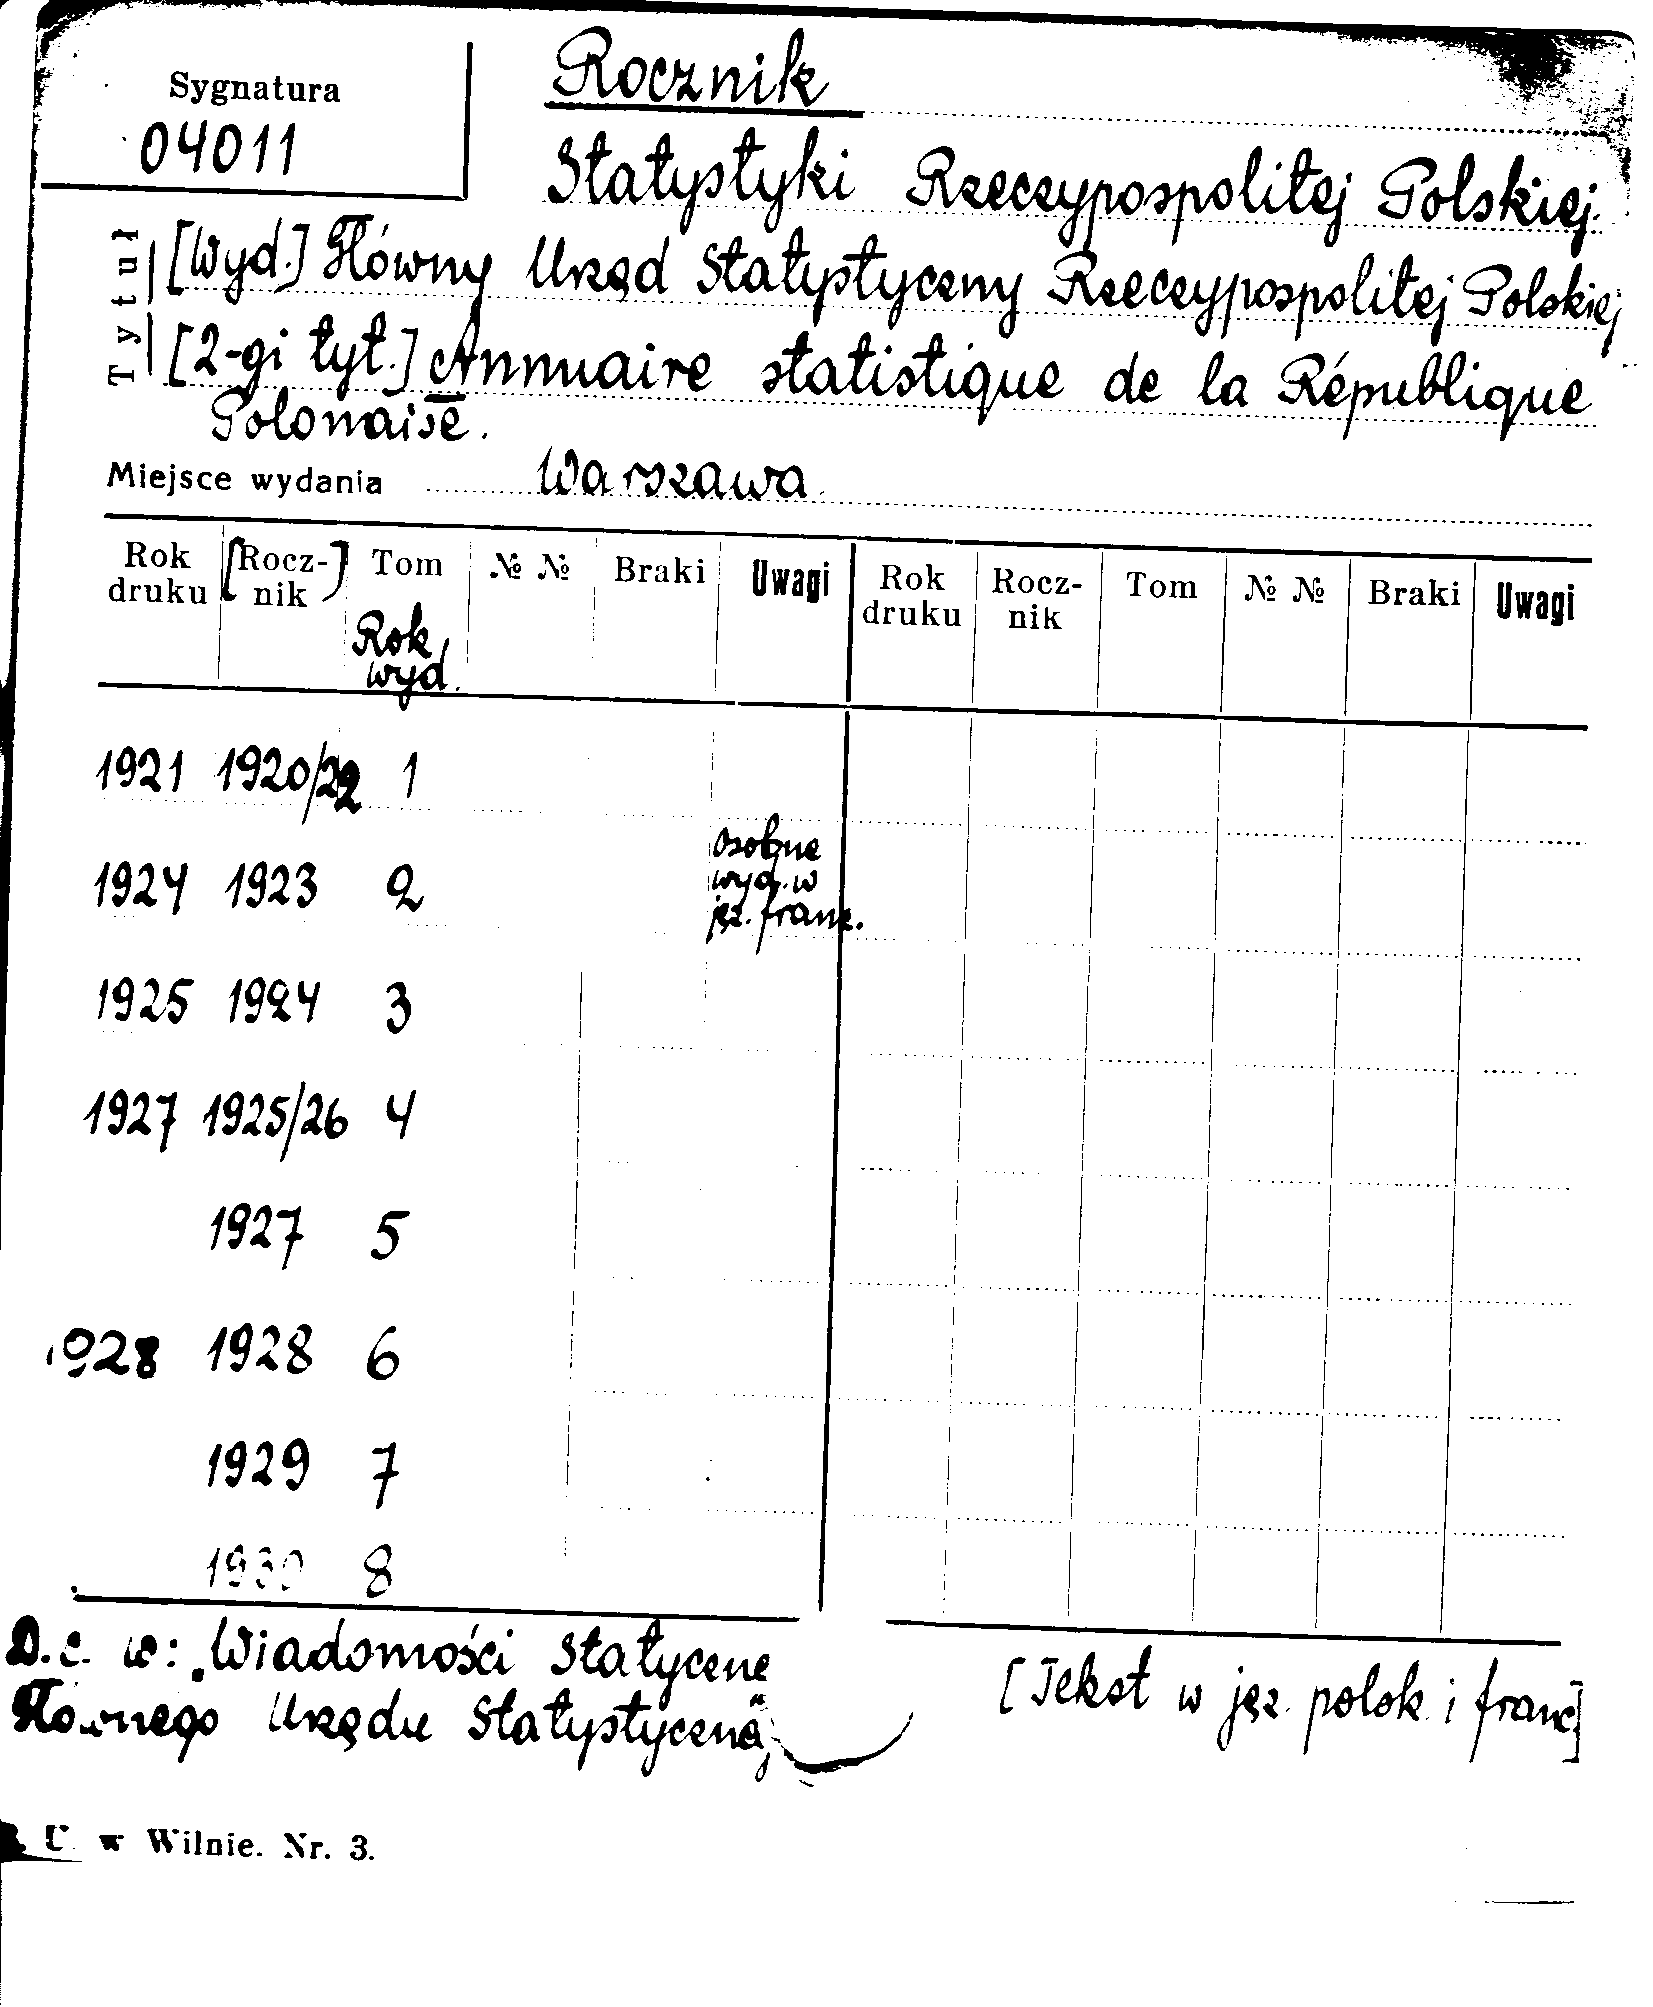 Sygnatura
04011
Rocznik
Statystyki Rzeczypospolitej Polskiej.
Tytuł
[Wyd.] Główny Urząd Statystyczny Rzeczypospolitej Polskiej
[2-gi tyt.] Annuaire statistique de la République
Polonaise.
Miejsce wydania Warszawa
Rok druku [Rocz-nik] Tom № № Braki Uwagi Rok druku Rocz-nik Tom № № Braki Uwagi
Rok
wyd.
1921 1920/22 1
osobne
wyd. w
jęz. franc.
1924 1923 2
1925 1924 3
1927 1925/26 4
1927 5
1928 1928 6
1929 7
1930 8
D.c. w: „Wiadomości Statyczne
Głównego Urzędu Statystyczną"
[Tekst w jęz. polsk i franc]
U w Wilnie. Nr. 3.